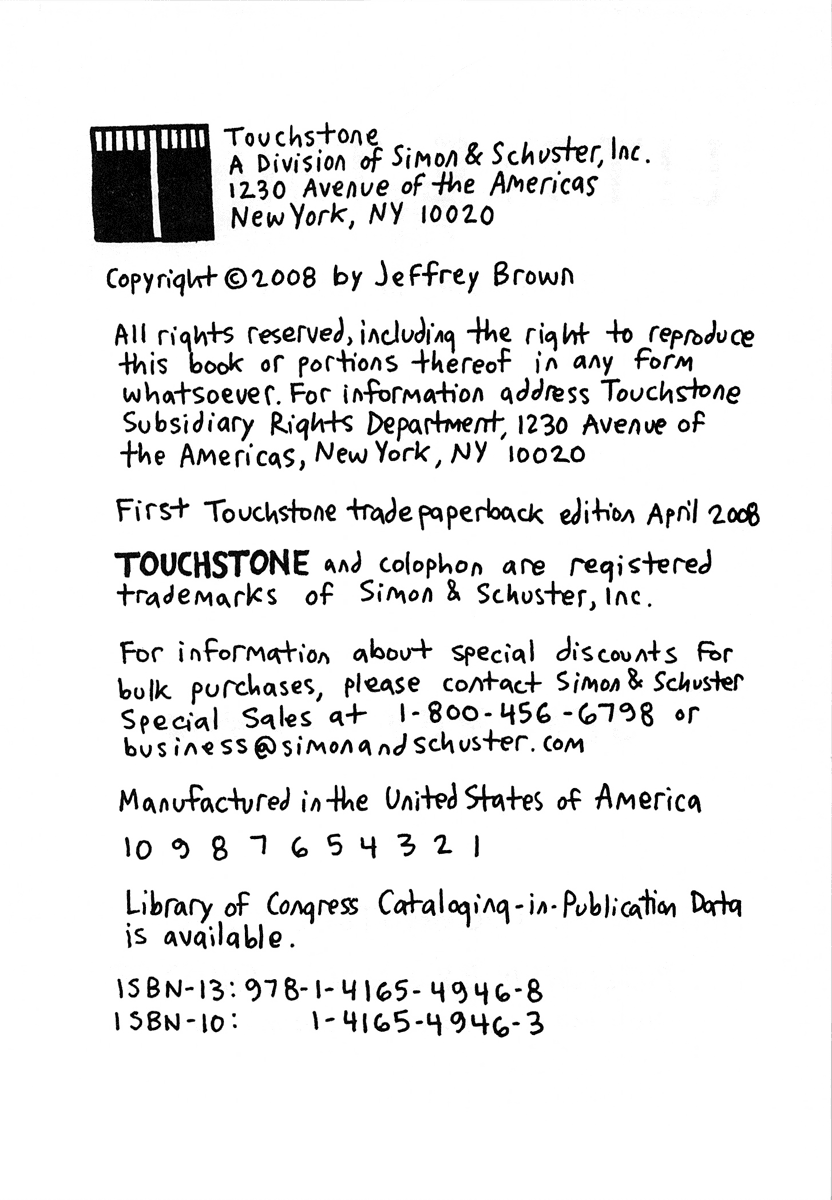 Touchstone
A Division of Simon & Schuster, Inc.
1230 Avenue of the Americas
New York, NY 10020
Copyright © 2008 by Jeffrey Brown
All rights reserved, including the right to reproduce
this book or portions thereof in any form
whatsoever. For information address Touchstone
Subsidiary Rights Department, 1230 Avenue of
the Americas, New York, NY 10020
First Touchstone trade paperback edition April 2008
TOUCHSTONE and colophon are registered
trademarks of Simon & Schuster, Inc.
For information about special discounts for
bulk purchases, please contact Simon & Schuster
Special Sales at 1-800-456-6798 or
business@simonandschuster.com
Manufactured in the United States of America
10 9 8 7 6 5 4 3 2 1
Library of Congress Cataloging-in-Publication Data
is available.
ISBN-13: 978-1-4165-4946-8
ISBN-10: 1-4165-4946-3